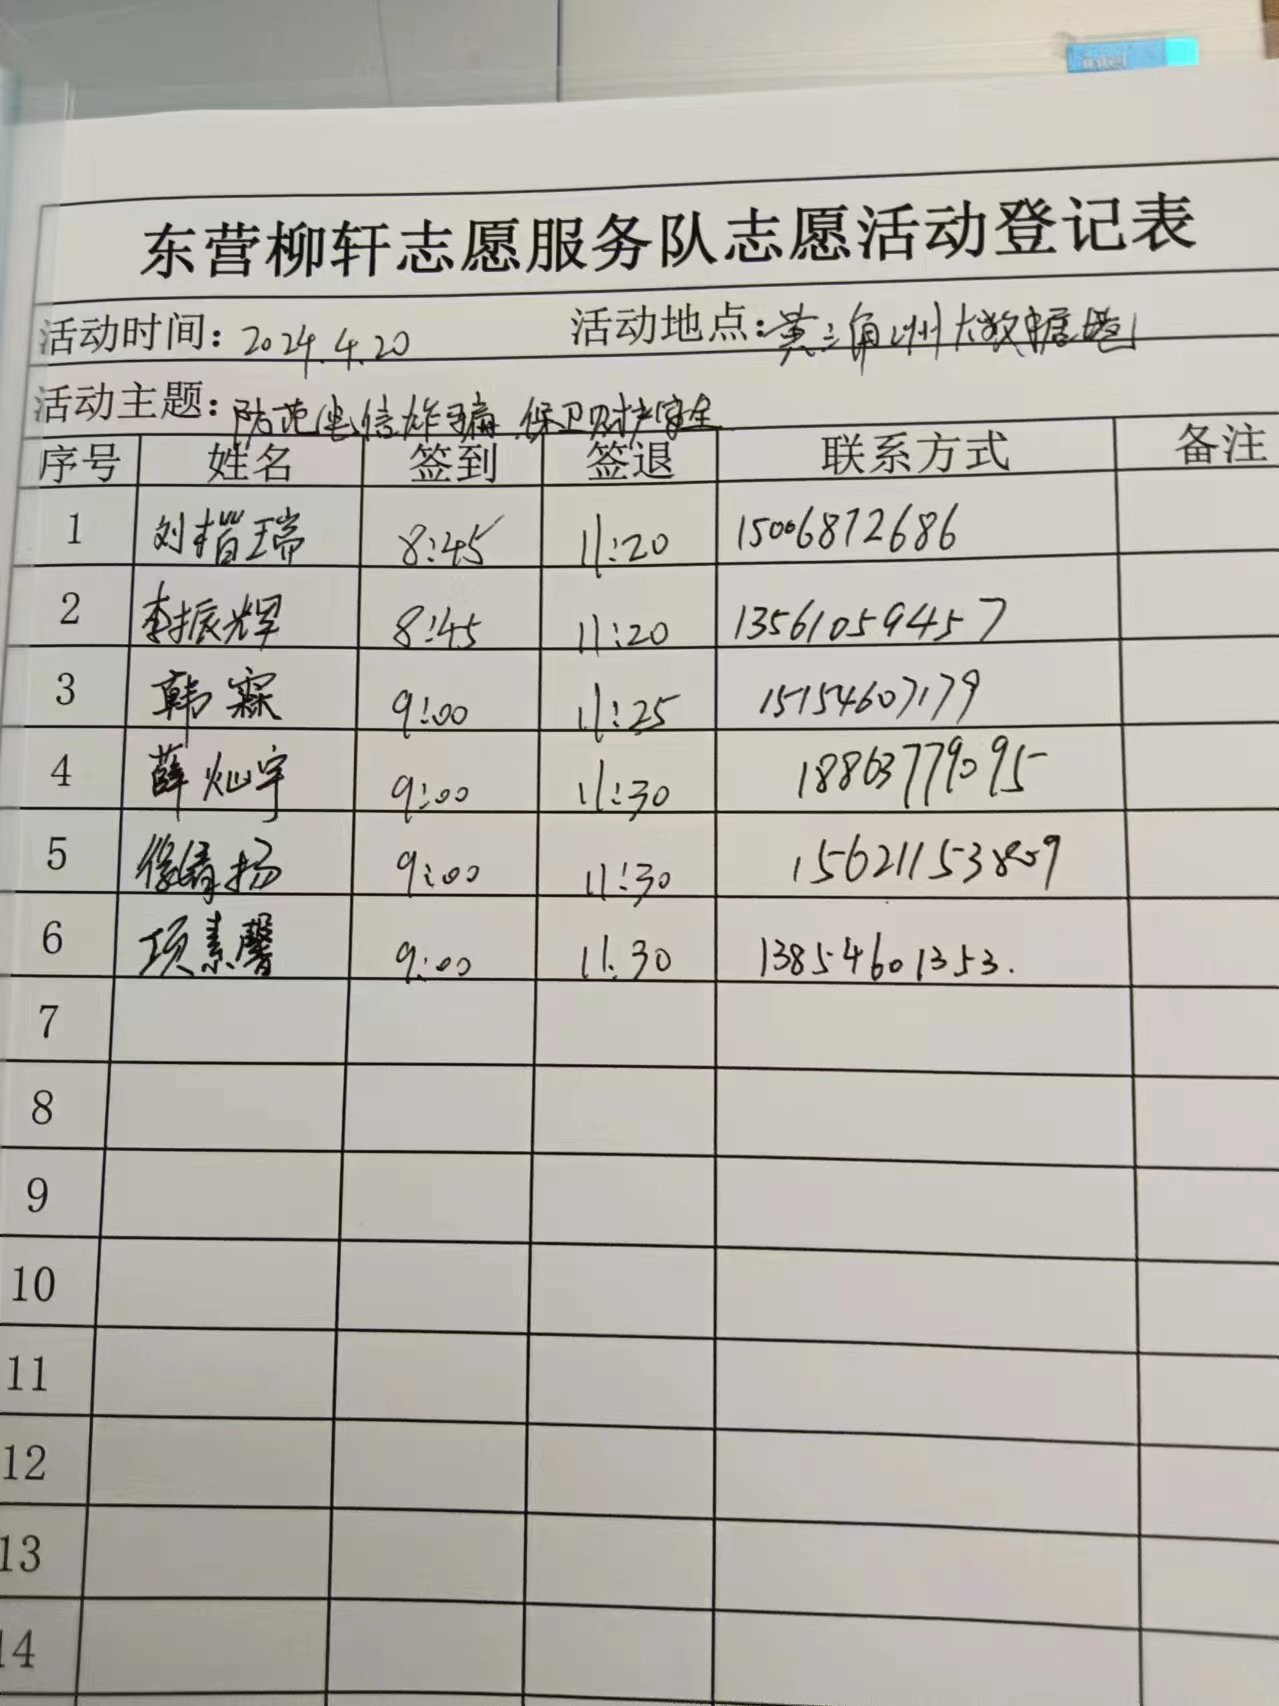 intel
东营柳轩志愿服务队志愿活动登记表
活动时间：2024.4.20 活动地点：黄三角州大数据港
活动主题：防范电信诈骗 保卫财产安全
序号 姓名 签到 签退 联系方式 备注
1 刘 瑞 8:45 11:20 15006872686
2 李振辉 8:45 11:20 13561059457
3 韩霖 9:00 11:25 15154607179
4 薛灿宇 9:00 11:30 18863779095
5 扬 9:00 11:30
6 项素馨 9:00 11:30 13854601353.
7
8
9
10
11
12
13
14